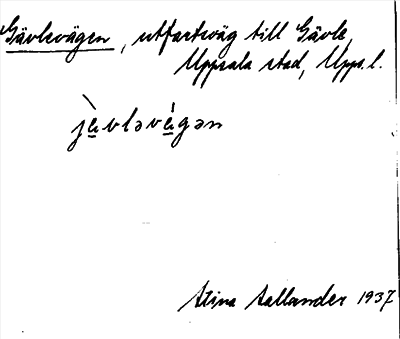 Gävlevägen, utfartsväg till Gävle,
Uppsala stad, Upps. l.
jàvləvágən
Stina Sallander 1937